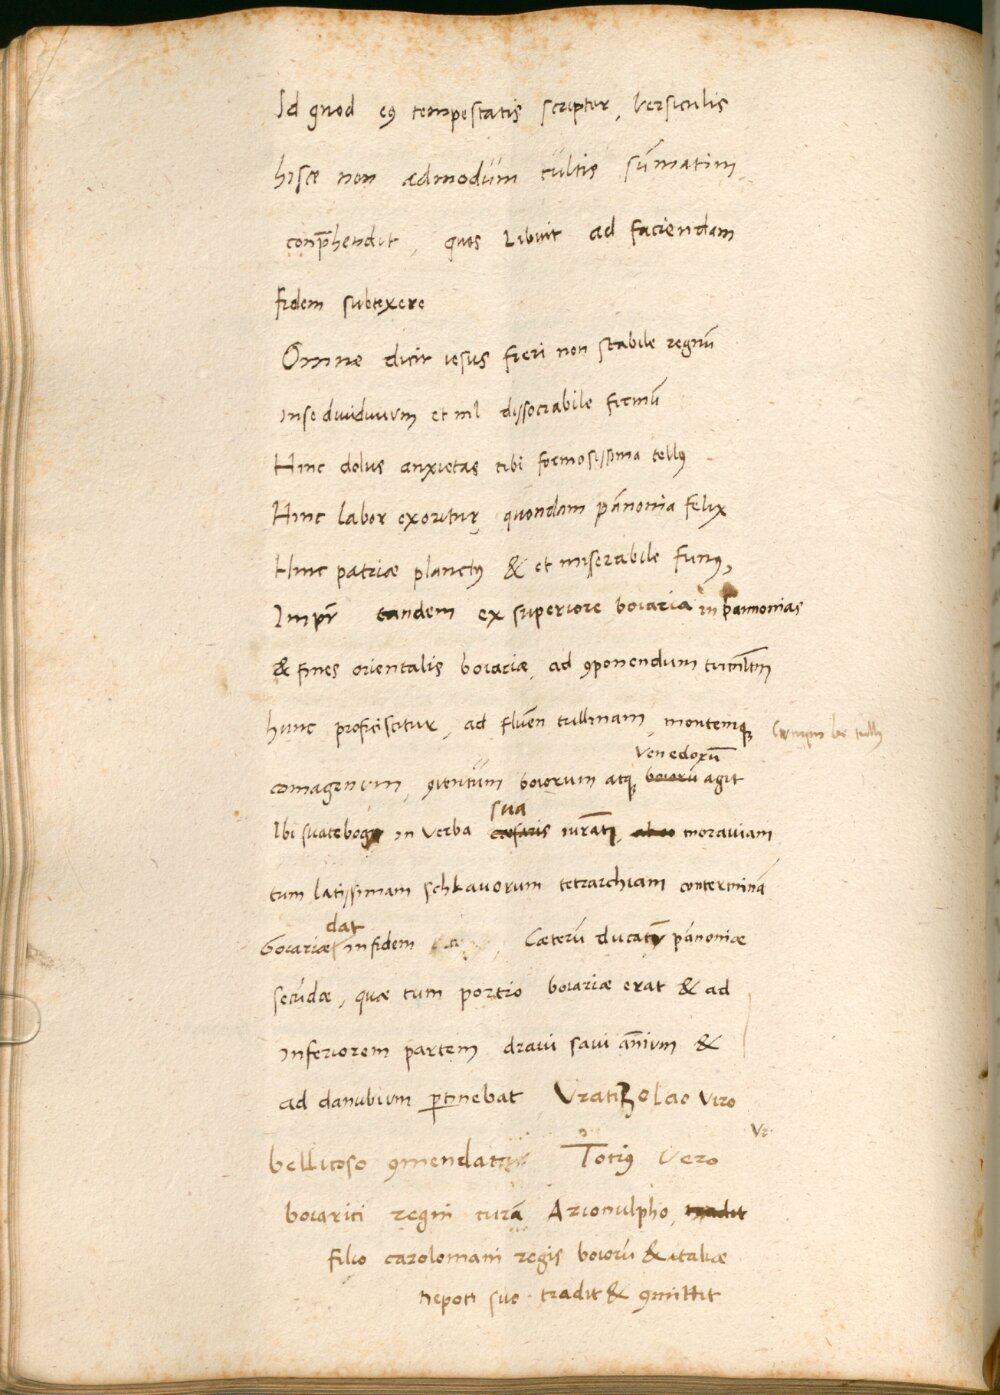 Id quod eꝰ tempestatis scriptor, versiculis
hisce non admodum cultis sūmatim
conp̄hendit, quos libuit ad faciendam
fidem subtexere
Omne dicit iesus fieri non stabile regnū
inse diuiduum et nil dissociabile firmū
Hinc dolus anxietas tibi formosissima tellꝰ
Hinc labor exoritur quondam pānonia felix
Hinc patriæ planctꝰ & et miserabile funꝰ,
Impr̄ tandem ex superiore boiaria in pannonias
& fines orientalis boiariæ, ad ꝯponendum tumltm̄
hunc proficiscitur, ad fluēn tullinam, montemqꝫ
comagenum, ꝯuentum boiorum atqꝫ boiorū venedorū agit
Ibi suatebogo in verba cæsaris sua iurāti, moraviam
tum latissimam schlauorum tetrarchiam conterminā
boiariæ dat in fidem, Cæterū ducatū pānoniæ
secūdæ, quæ tum portio boiariæ erat & ad
inferiorem partem draui saui ānium &
ad danubium ꝑtinebat Vratizolao viro
bellicoso ꝯmendatur Totiꝰ vero
boiarici regni curā Arionulpho, tradit
filio carolomani regis boiorū & italiæ
nepoti suo tradit & ꝯmittit